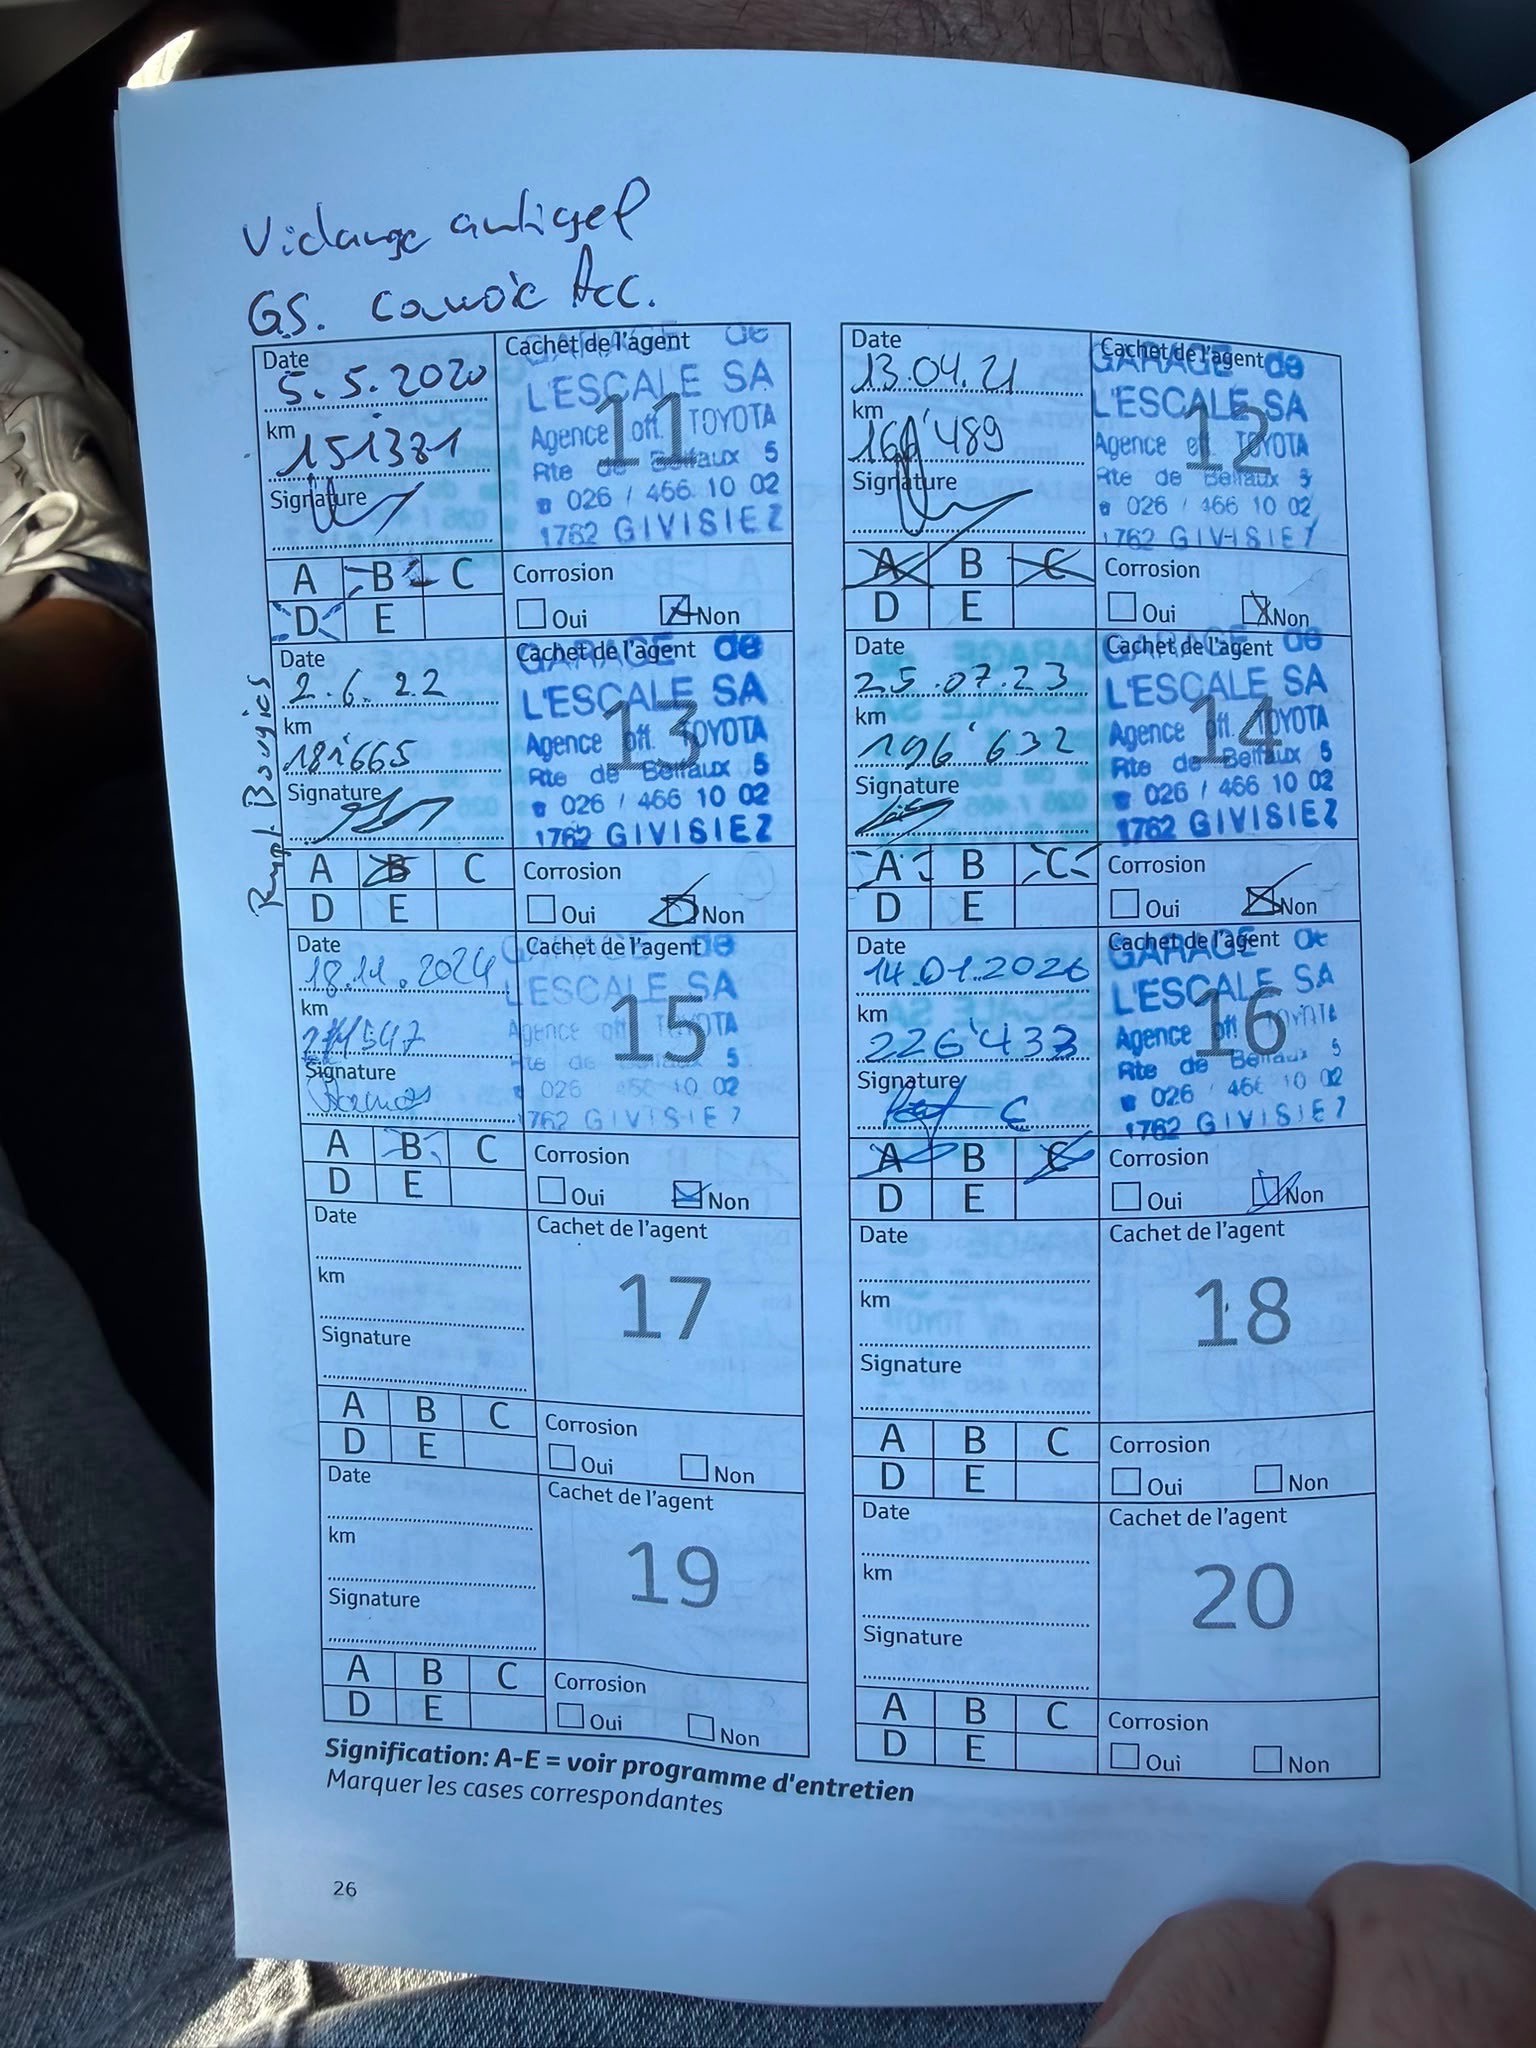 Vidange antigel
GS. courroie Acc.
Date
5.5.2020
km
151'381
Signature
Cachet de l'agent
11
GARAGE de
L'ESCALE SA
Agence off. TOYOTA
Rte de Belfaux 5
026 / 466 10 02
1762 GIVISIEZ
A B C
D E
Corrosion
Oui Non
Date
13.04.21
km
'489
Signature
Cachet de l'agent
12
GARAGE de
L'ESCALE SA
Agence off. TOYOTA
Rte de Belfaux 5
026 / 466 10 02
1762 GIVISIEZ
A B C
D E
Corrosion
Oui Non
Rempl. Bougies
Date
2.6.22
km
181'665
Signature
Cachet de l'agent
13
GARAGE de
L'ESCALE SA
Agence off. TOYOTA
Rte de Belfaux 5
026 / 466 10 02
1762 GIVISIEZ
A B C
D E
Corrosion
Oui Non
Date
25.07.23
km
196'632
Signature
Cachet de l'agent
14
GARAGE de
L'ESCALE SA
Agence off. TOYOTA
Rte de Belfaux 5
026 / 466 10 02
1762 GIVISIEZ
A B C
D E
Corrosion
Oui Non
Date
18.11.2024
km
Signature
Cachet de l'agent
15
GARAGE de
L'ESCALE SA
Agence off. TOYOTA
Rte de Belfaux 5
026 466 10 02
1762 GIVISIEZ
A B C
D E
Corrosion
Oui Non
Date
14.01.2026
km
226'433
Signature
Cachet de l'agent
16
GARAGE de
L'ESCALE SA
Agence off. TOYOTA
Rte de Belfaux 5
026 / 466 10 02
1762 GIVISIEZ
A B C
D E
Corrosion
Oui Non
Date
km
Signature
Cachet de l'agent
17
A B C
D E
Corrosion
Oui Non
Date
km
Signature
Cachet de l'agent
18
A B C
D E
Corrosion
Oui Non
Date
km
Signature
Cachet de l'agent
19
A B C
D E
Corrosion
Oui Non
Date
km
Signature
Cachet de l'agent
20
A B C
D E
Corrosion
Oui Non
Signification: A-E = voir programme d'entretien
Marquer les cases correspondantes
26